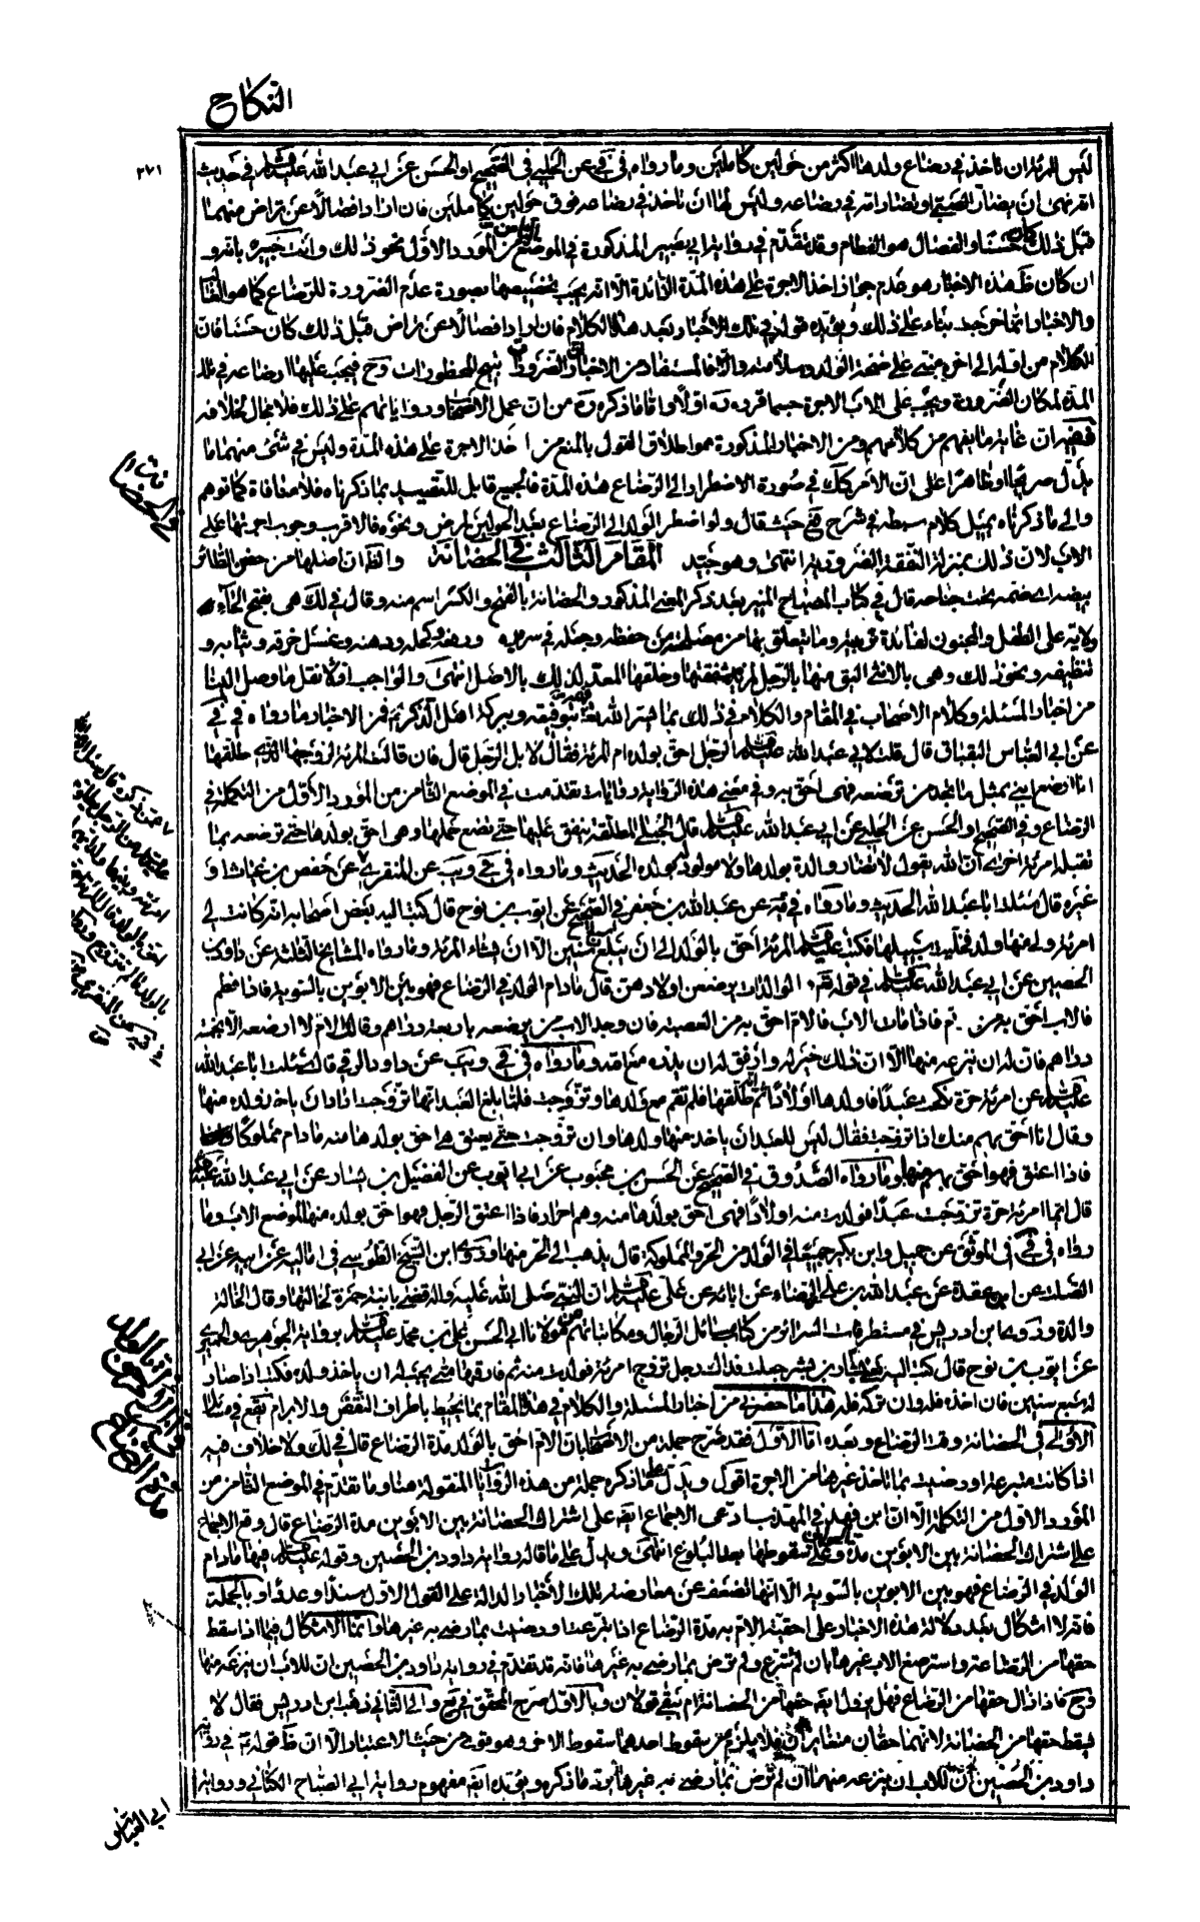 النكاح
٣٧١
ليس للمرئة ان تاخذ في رضاع ولدها اكثر من حولين كاملين وما رواه في في عن الحلبي في الصحيح او الحسن عن ابي عبد الله عليه السلام في حديث
انه نهى ان يضار الصبي او يضار امه في رضاعه وليس لها ان تاخذ في رضاعه فوق حولين كاملين فان ارادا فصالا عن تراض منهما
قبل ذلك كان حسنا والفصال هو الفطام وقد تقدم في رواية ابي بصير المذكورة في الموضع من المورد الاول نحو ذلك وانت خبير بانه و
ان كان ظ هذه الاخبار هو عدم جواز اخذ الاجرة على هذه المدة الزائدة الا انه يجب تخصيصها بصورة عدم الضرورة للرضاع كما هو الغالب
والاخبار انما خرجت بناء على ذلك ويؤيده قوله في تلك الاخبار بعد هذا الكلام فان ارادا فصالا عن تراض قبل ذلك كان حسنا فان
الكلام من اوله الى اخره مبني على صحة الولد وسلامته والا فالمستفاد من الاخبار ان الضرورات تبيح المحظورات وح فيجب عليها ارضاعه في تلك
المدة لمكان الضرورة ويجب على الاب الاجرة حسبما قرره ره اولا واما ما ذكره ره من ان عمل الاصحاب ورواياتهم على ذلك فلا مجال لخلافه
ففيه ان غاية ما يفهم من كلامهم ومن الاخبار المذكورة هو اطلاق القول بالمنع من اخذ الاجرة على هذه المدة وليس في شئ منهما ما
يدل صريحا او ظاهرا على ان الامر كك في صورة الاضطرار الى الرضاع هذه المدة فالجميع قابل للتقييد بما ذكرناه فلا منافاة كما توهم
والى ما ذكرناه يميل كلام سبطه في شرح فع حيث قال ولو اضطر الولد الى الرضاع بعد الحولين لمرض ونحوه فالاقرب وجوب اجرتها على
الاب لان ذلك بمنزلة النفقة الضرورية انتهى وهو جيد المقام الثالث في الحضانة والظ ان اصلها من حضن الطائر
بيضه اي ضمه تحت جناحه قال في كتاب المصباح المنير بعد ذكر المعنى المذكور والحضانة بالفتح والكسر اسم منه وقال في لك هي بفتح الحاء
ولاية على الطفل والمجنون لفائدة تربيته وما يتعلق بها من مصلحته من حفظه وجعله في سريره ورفعه وكحله ودهنه وغسل خرقه وثيابه و
تنظيفه ونحو ذلك وهي بالانثى اليق منها بالرجل لمزيد شفقتها وخلقها المعد لذلك بالاصل انتهى والواجب اولا نقل ما وصل الينا
من اخبار المسئلة وكلام الاصحاب في المقام والكلام في ذلك بما يسر الله فهمه بتوفيقه وبركة اهل الذكر ع فمن الاخبار ما رواه في في
عن ابي العباس البقباق قال قلت لابي عبد الله عليه السلام الرجل احق بولده ام المرئة فقال لا بل الرجل قال فان قالت المرئة لزوجها الذي طلقها
انا ارضع ابني بمثل ما تجد من ترضعه فهي احق به وفي معنى هذه الرواية روايات تقدمت في الموضع الثامن من المورد الاول من التكملة في
الرضاع وفي الصحيح او الحسن عن الحلبي عن ابي عبد الله عليه السلام قال الحبلى المطلقة ينفق عليها حتى تضع حملها وهي احق بولدها حتى ترضعه بما
تقبله امرئة اخرى ان الله يقول لا تضار والدة بولدها ولا مولود له بولده الحديث وما رواه في في ويب عن المنقري عمن ذكره عن حفص بن غياث او
غيره قال سئلت ابا عبد الله الحديث وما رواه في فيه عن عبد الله بن جعفر في الصحيح عن ايوب بن نوح قال كتب اليه بعض اصحابه انه كانت لي
امرئة ولي منها ولد فخليت سبيلها فكتب عليه السلام المرئة احق بالولد الى ان يبلغ سبع سنين الا ان تشاء المرئة وما رواه المشايخ الثلثة عن داود بن
الحصين عن ابي عبد الله عليه السلام في قوله تعم والوالدات يرضعن اولادهن قال ما دام الولد في الرضاع فهو بين الابوين بالسوية فاذا فطم
فالاب احق به من الام فاذا مات الاب فالام احق به من العصبة فان وجد الاب من يرضعه باربعة دراهم وقالت الام لا ارضعه الا بخمسة
دراهم فان له ان ينزعه منها الا ان ذلك خير له وارفق له ان يذره مع امه وما رواه في في ويب عن داود الرقي قال سئلت ابا عبد الله
عليه السلام عن امرئة حرة نكحت عبدا فاولدها اولادا ثم انه طلقها فلم تقم مع ولدها وتزوجت فلما بلغ العبد انها تزوجت اراد ان ياخذ ولده منها
وقال انا احق بهم منك اذا تزوجت فقال ليس للعبد ان ياخذ منها ولدها وان تزوجت حتى يعتق هي احق بولدها منه ما دام مملوكا
فاذا اعتق فهو احق بهم منها وما رواه الصدوق في الصحيح عن الحسن بن محبوب عن ابي ايوب عن الفضيل بن يسار عن ابي عبد الله عليه السلام
قال ايما امرئة حرة تزوجت عبدا فولدت منه اولادا فهي احق بولدها منه وهم احرار فاذا اعتق الرجل فهو احق بولده منها لموضع الاب وما
رواه في في في الموثق عن جميل وابن بكير جميعا في الولد من الحر والمملوكة قال يذهب الى الحر منهما وروى ابن الشيخ الطوسي في اماليه عن ابيه عن ابي
الصلت عن ابن عقدة عن عبد الله بن علي عن الرضا عن ابائه عن علي عليه السلام ان النبي صلى الله عليه واله قضى بابنة حمزة لخالتها وقال الخالة
والدة وروى ابن ادريس في مستطرفات السرائر من كتاب مسائل الرجال ومكاتباتهم مولانا ابي الحسن علي بن محمد عليه السلام برواية الجوهري والحميري
عن ايوب بن نوح قال كتب اليه مع بشار بن بشير جعلت فداك رجل تزوج امرئة فولدت منه ثم فارقها متى يجب له ان ياخذ ولده فكتب اذا صار
له سبع سنين فان اخذه فله وان تركه فله هذا ما حضرني من اخبار المسئلة والكلام في هذا المقام بما يحيط باطراف النقض والابرام يقع في مسائل
الاولى في الحضانة وقت الرضاع وبعده اما الاول فقد صرح جملة من الاصحاب بان الام احق بالولد مدة الرضاع قال في لك ولا خلاف فيه
اذا كانت متبرعة او رضيت بما تاخذ غيرها من الاجرة اقول ويدل على ما ذكره جملة من هذه الروايات المنقولة هنا وما تقدم في الموضع الثامن من
المورد الاول من التكملة الا ان ابن فهد في المهذب ادعى الاجماع ايضا على اشتراك الحضانة بين الابوين مدة الرضاع قال وقع الاجماع
على اشتراك الحضانة بين الابوين مدة وعلى سقوطها بعد البلوغ انتهى ويدل على ما قاله رواية داود بن الحصين وقوله عليه السلام فيها ما دام
الولد في الرضاع فهو بين الابوين بالسوية الا انها تضعف عن معارضة تلك الاخبار الدالة على القول الاول سندا وعددا وبالجملة
فانه لا اشكال بعد دلالة هذه الاخبار على احقية الام به مدة الرضاع اذا تبرعت او رضيت بما رضي به غيرها وانما الاشكال فيما اذا سقط
حقها من الرضاعة واسترضع الاب غيرها بان لم تتبرع ولم ترض بما رضي به غيرها فانه قد تقدم في رواية داود بن الحصين ان للاب ان ينزعه منها
وح فاذا زال حقها من الرضاع فهل يزول ايضا حقها من الحضانة ام يبقى قولان وبالاول صرح المحقق في يع والى الثاني ذهب ابن ادريس فقال لا
يسقط حقها من الحضانة لانهما حقان متغايران فلا يلزم من سقوط احدهما سقوط الاخر وهو قوي من حيث الاعتبار الا ان ظ قوله ع في رواية
داود بن الحصين ان للاب ان ينزعه منها ان لم ترض بما رضي به غيرها يرد ما ذكره ويؤيده ايضا مفهوم رواية ابي الصباح الكناني ورواية
ابي العباس
في الحضانة
عمن ذكره قال سئل
عن الرجل يطلق
امرئته وبينهما ولد ايهما
احق بالولد قال المرئة
بالولد ما لم تتزوج ورواه
في فيه عن المنقري
مدة الرضاع